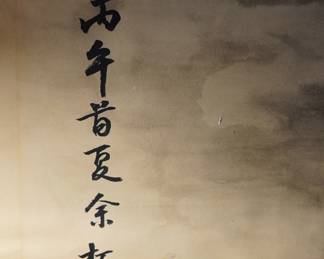 丙午首夏余